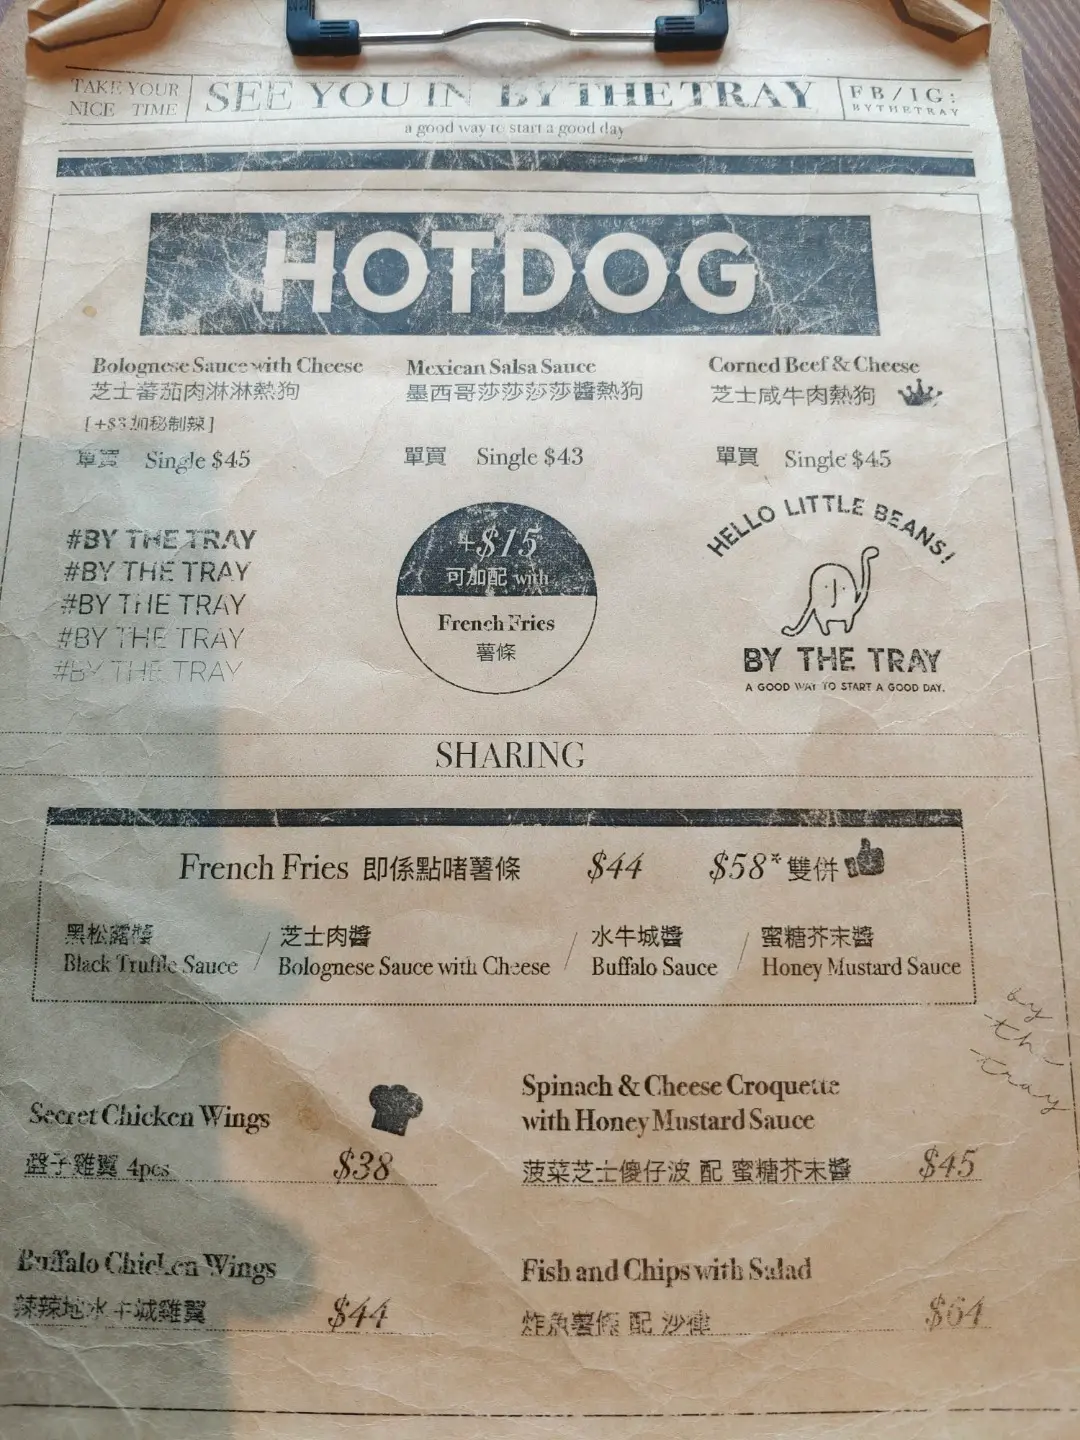 TAKE YOUR
NICE TIME
SEE YOU IN BY THE TRAY
FB/IG:
BYTHETRAY
a good way to start a good day
HOTDOG
Bolognese Sauce with Cheese
芝士蕃茄肉淋淋熱狗
[+$3加秘制辣]
單買 Single $45
Mexican Salsa Sauce
墨西哥莎莎莎莎醬熱狗
單買 Single $43
Corned Beef & Cheese
芝士咸牛肉熱狗
單買 Single $45
#BY THE TRAY
#BY THE TRAY
#BY THE TRAY
#BY THE TRAY
#BY THE TRAY
+$15
可加配 with
French Fries
薯條
HELLO LITTLE BEANS!
BY THE TRAY
A GOOD WAY TO START A GOOD DAY.
SHARING
French Fries 即係點啫薯條 $44 $58*雙併
黑松露醬 / 芝士肉醬 / 水牛城醬 / 蜜糖芥末醬
Black Truffle Sauce / Bolognese Sauce with Cheese / Buffalo Sauce / Honey Mustard Sauce
by
the
tray
Secret Chicken Wings
盤子雞翼 4pcs $38
Spinach & Cheese Croquette
with Honey Mustard Sauce
菠菜芝士傻仔波 配 蜜糖芥末醬 $45
Buffalo Chicken Wings
辣辣地水牛城雞翼 $44
Fish and Chips with Salad
炸魚薯條 配 沙律 $64